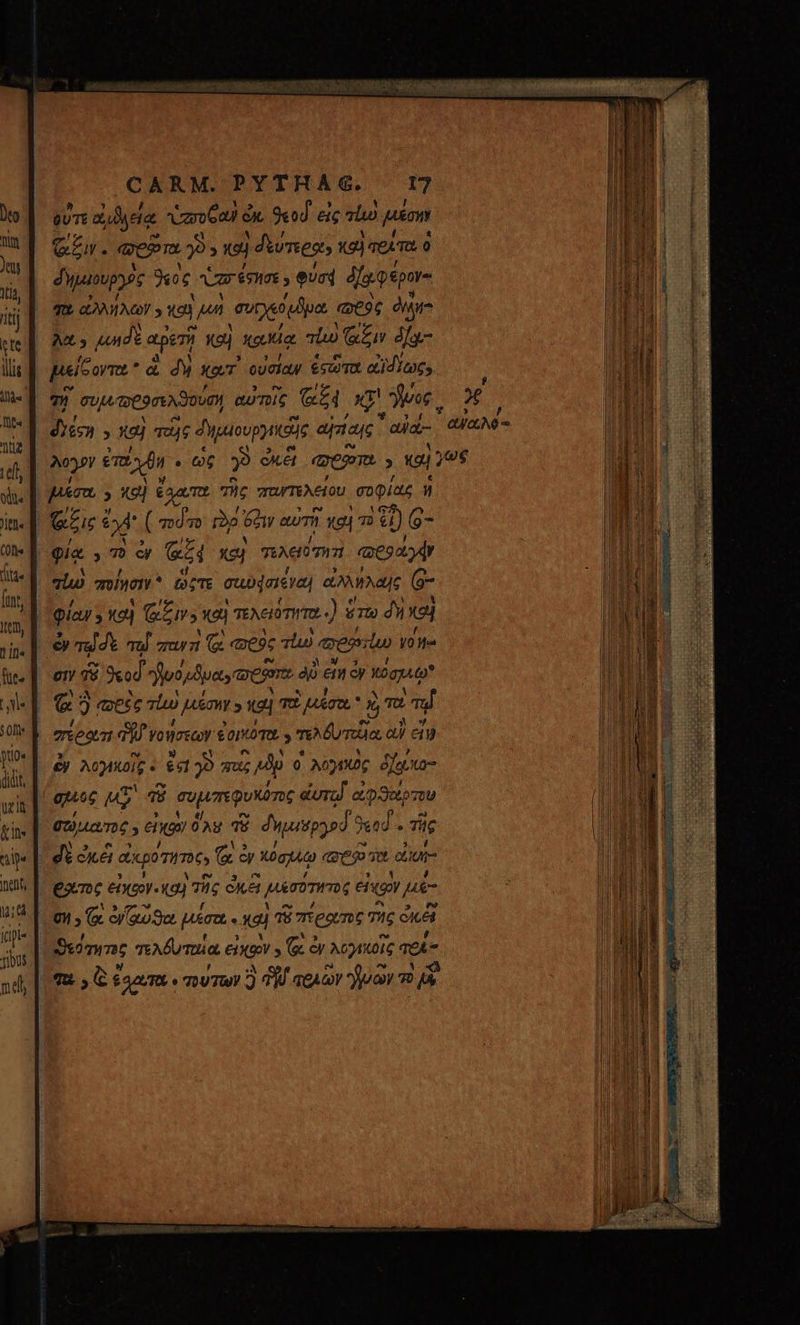 CARM. PYTHAG. 17
οὔτε ἀϊδιότητα ὑπερβαλεῖν ἐκ θεοῦ εἰς τὴν μέσην
τάξιν. πρῶτα γὸ, καὶ δεύτερα, καὶ τρίτα ὁ
δημιουργὸς θεὸς ὑπέστησε, φύσει διαφέρον-
τα ἀλλήλων, καὶ μὴ συγχεόμενα πρὸς ἄλλη-
λα, μηδὲ ἀρετῇ καὶ κακίᾳ τὴν τάξιν δια-
μείβοντα· ἃ δὴ κατ' οὐσίαν ἑστῶτα ἀϊδίως,
τῇ συμπροελθούσῃ αὐτοῖς τάξει κατὰ γένος
διέστη, καὶ ταῖς δημιουργικαῖς αἰτίαις ἀνά-
ἀναλό-
λογον ἐτάχθη. ὡς γὸ ἐκεῖ πρῶτα, καὶ
γως
μέσα, καὶ ἔσχατα τῆς παντελείου σοφίας ἡ
τάξις ἔχει (τοῦτο γὰρ ἔστιν αὐτῇ καὶ τὸ εἶναι σο-
φία, τὸ ἐν τάξει καὶ τελειότητι προάγειν
τὴν ποίησιν· ὥστε συνῆφθαι ἀλλήλαις σο-
φίαν, καὶ τάξιν, καὶ τελειότητα.) οὕτω δὴ καὶ
ἐν τῷδε τῷ παντὶ τὰ πρὸς τὴν πρώτην νόη-
σιν τοῦ θεοῦ γενόμενα, πρῶτα ἂν εἴη ἐν κόσμῳ·
τὰ δὲ πρὸς τὴν μέσην, καὶ τὰ μέσα· καὶ τὰ τῷ
πέρατι τῶν νοήσεων ἐοικότα, τελευταῖα ἂν εἴη
ἐν λογικοῖς. ἔστι γὸ πως μὲν ὁ λογικὸς διάκο-
σμος μετὰ τοῦ συμπεφυκότος αὐτῷ ἀφθάρτου
σώματος, εἰκὼν ὅλου τοῦ δημιουργοῦ θεοῦ. τῆς
δὲ ἐκεῖ ἀκρότητος, τὰ ἐν κόσμῳ πρῶτα ἀκή-
ρατος εἰκών. καὶ τῆς ἐκεῖ μεσότητος εἰκὼν μέ-
ση, τὰ ἐνταῦθα μέσα. καὶ τοῦ πέρατος τῆς ἐκεῖ
θεότητος τελευταία εἰκὼν, τὰ ἐν λογικοῖς τρί-
τα, καὶ ἔσχατα. τούτων δὲ τῶν τριῶν γενῶν τὸ μὲν